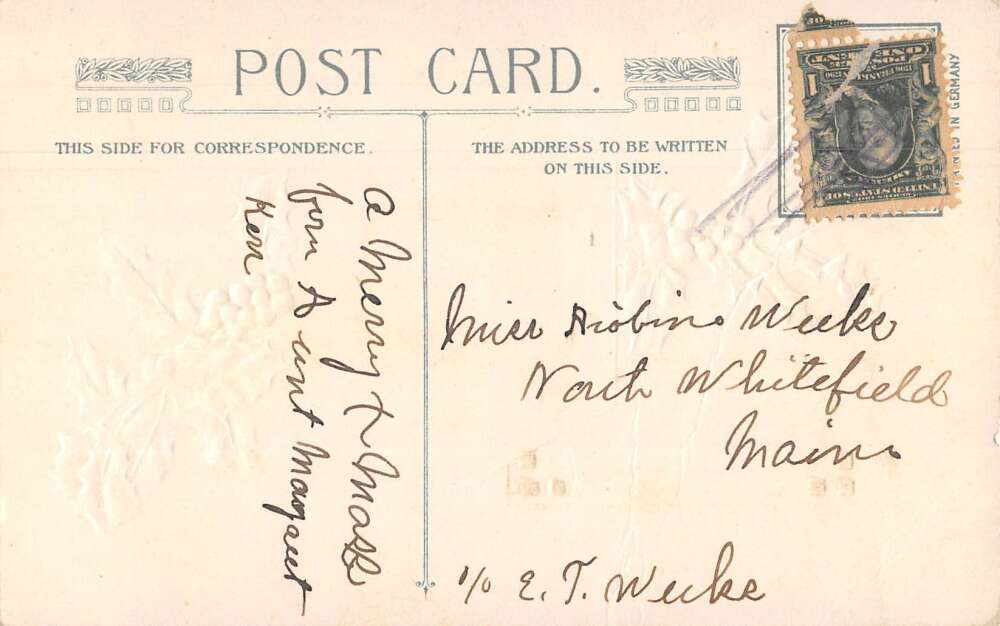 POST CARD.
THIS SIDE FOR CORRESPONDENCE.
THE ADDRESS TO BE WRITTEN
ON THIS SIDE.
IN GERMANY
ONE
1 1
UNITED STATES OF
a Merry X Mass
from Aunt Margaret
Kerr
Miss Weeks
North Whitefield
Maine
c/o E. T. Weeks